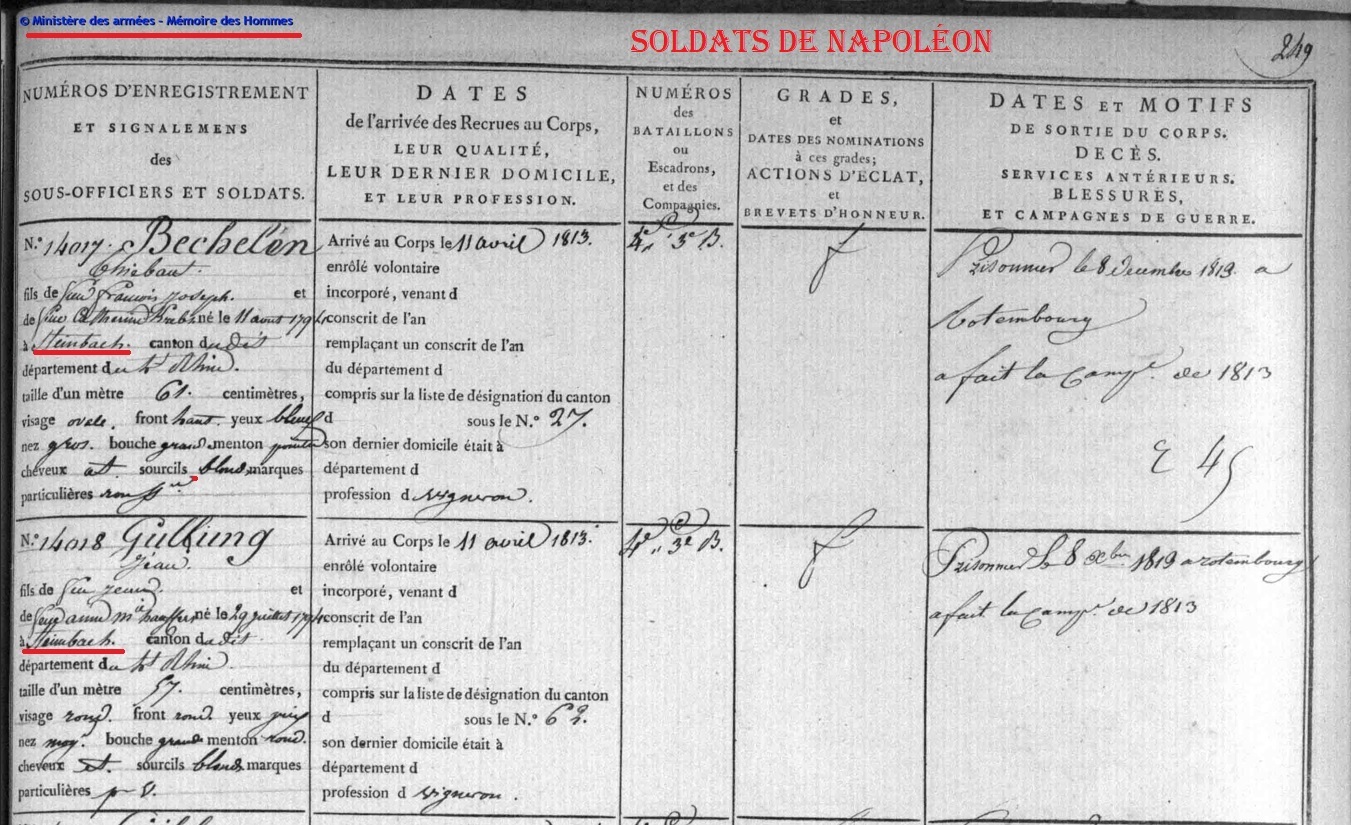 © Ministère des armées - Mémoire des Hommes
SOLDATS DE NAPOLÉON
249
NUMÉROS D'ENREGISTREMENT
ET SIGNALEMENS
des
SOUS-OFFICIERS ET SOLDATS.
DATES
de l'arrivée des Recrues au Corps,
LEUR QUALITÉ,
LEUR DERNIER DOMICILE,
ET LEUR PROFESSION.
NUMÉROS
des
BATAILLONS
ou
Escadrons,
et des
Compagnies.
GRADES,
et
DATES DES NOMINATIONS
à ces grades;
ACTIONS D'ÉCLAT,
et
BREVETS D'HONNEUR.
DATES ET MOTIFS
DE SORTIE DU CORPS.
DECÈS.
SERVICES ANTÉRIEURS.
BLESSURES,
ET CAMPAGNES DE GUERRE.
N.º 14017. Bechelén
Thiebaut.
fils de feu françois joseph. et
de feue Catherine né le 11 aout 1794
à Steinbach. canton dudit
département du ht Rhin.
taille d'un mètre 61. centimètres,
visage ovale. front haut. yeux bleus
nez gros. bouche grande menton pointu
cheveux et sourcils blond marques
particulières
Arrivé au Corps le 11 avril 1813.
enrôlé volontaire
incorporé, venant d
conscrit de l'an
remplaçant un conscrit de l'an
du département d
compris sur la liste de désignation du canton
d sous le N.º 27.
son dernier domicile était à
département d
profession d vigneron.
4e 3e B.
Prisonnier le 8 decembre 1813 a
Rotembourg
a fait la Campe. de 1813
E 45
N.º 14018 Gullung
Jean.
fils de feu jean. et
de feue anne mie né le 29 juillet 1794
à Steinbach. canton dudit
département du ht Rhin.
taille d'un mètre 57. centimètres,
visage rond. front rond yeux gris
nez moy. bouche grande menton rond.
cheveux et. sourcils blonds marques
particulières p v.
Arrivé au Corps le 11 avril 1813.
enrôlé volontaire
incorporé, venant d
conscrit de l'an
remplaçant un conscrit de l'an
du département d
compris sur la liste de désignation du canton
d sous le N.º 62.
son dernier domicile était à
département d
profession d vigneron.
4e 3e B.
Prisonnier le 8 xbre 1813 a rotembourg
a fait la campe. de 1813